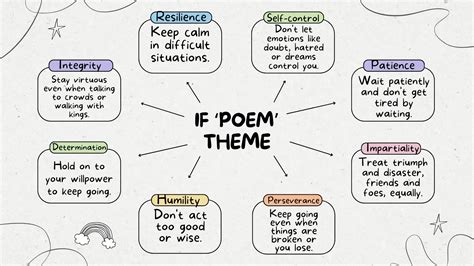 Resilience
Keep calm
in difficult
situations.
Self-control
Don't let
emotions like
doubt, hatred
or dreams
control you.
Integrity
Stay virtuous
even when talking
to crowds or
walking with
kings.
Patience
Wait patiently
and don't get
tired by
waiting.
IF 'POEM'
THEME
Determination
Hold on to
your willpower
to keep going.
Impartiality
Treat triumph
and disaster,
friends and
foes, equally.
Humility
Don't act
too good
or wise.
Perseverance
Keep going
even when
things are
broken or
you lose.